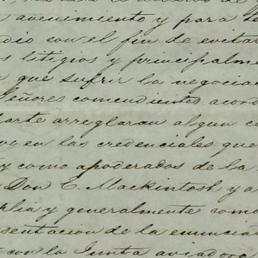 avenimiento y para te
dio con el fin de evitar
s litigios y principalme
que sufrir la negocia
Señores comendientes acord
parte arreglaran algun c
ve en las credenciales que
y como apoderados de la
Don E. Mackintosh y a
plia y generalmente como
sentacion de la enuncia
con la Junta aviadora